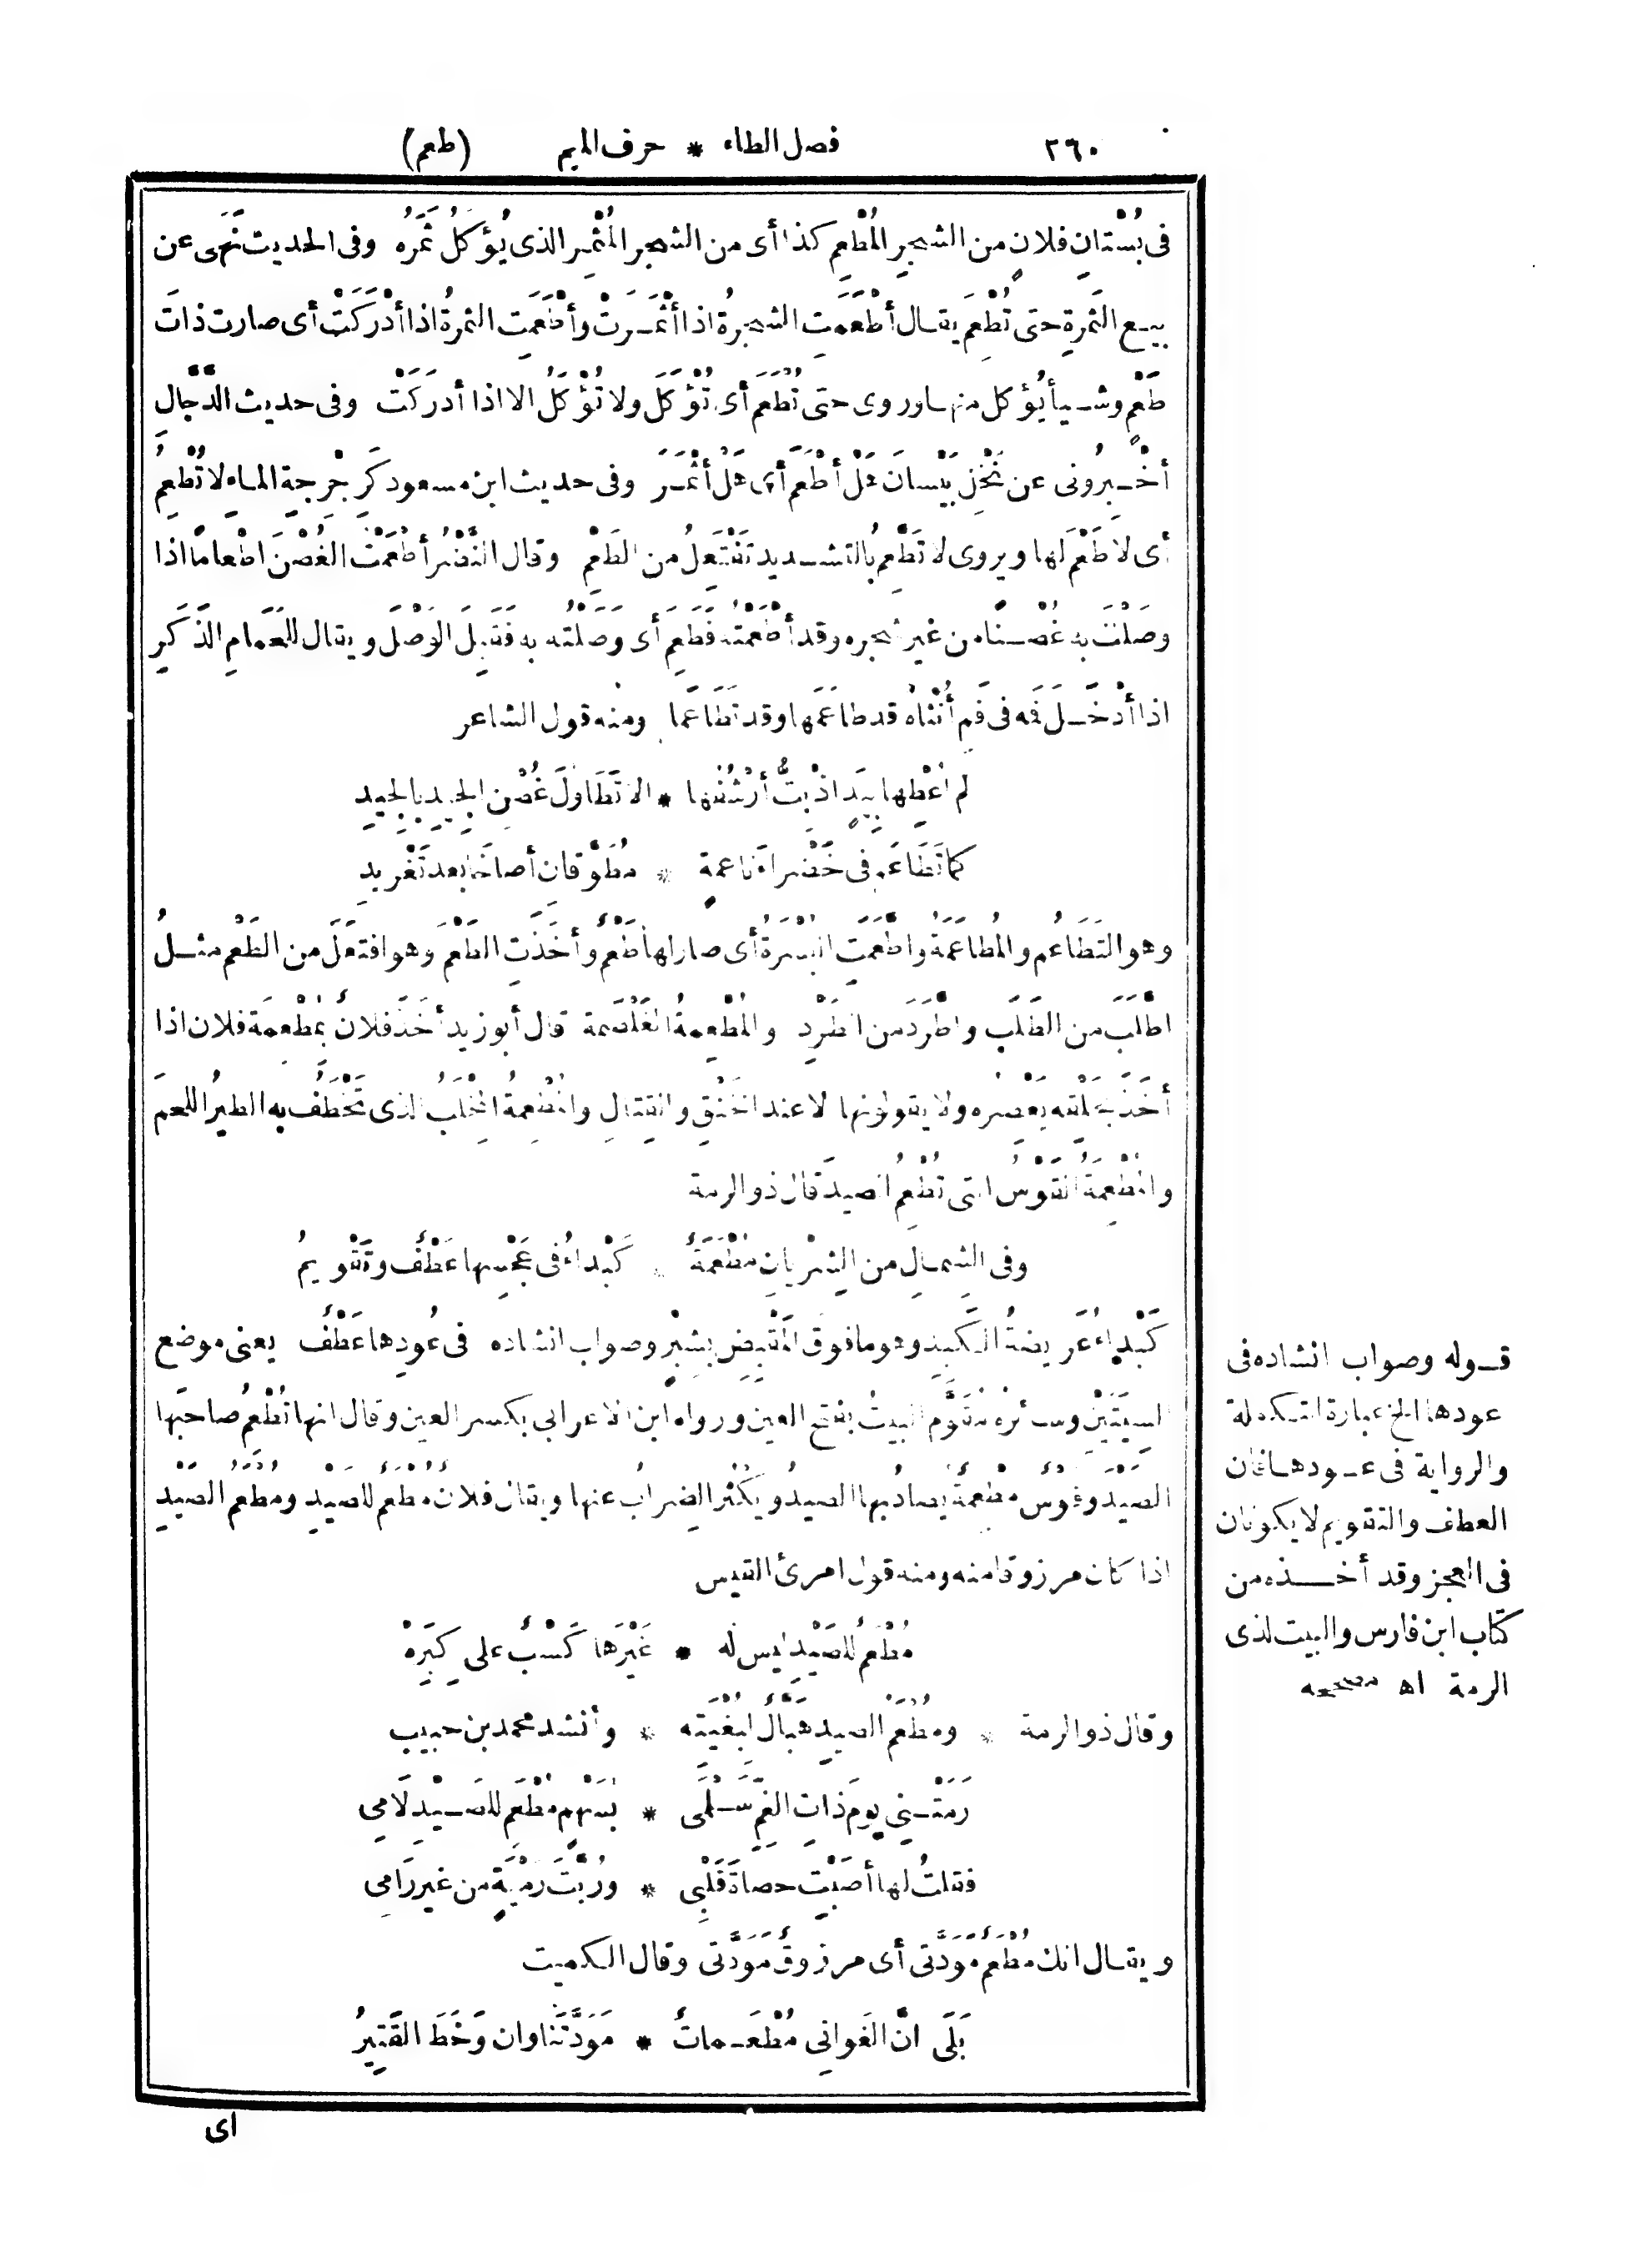 ٢٦٠ فصل الطاء * حرف الميم (طعم)
فى بُسْتانِ فلانٍ من الشجرِ المُطْعِمِ كذا أى من الشجر المُثْمِر الذى يُؤْكلُ ثَمَرُه وفى الحديث نَهَى عن
بيع الثمرةِ حتى تُطْعِمَ يقال أَطْعَمَتِ الشجرةُ اذا أَثْمَرَتْ وأَطْعَمَتِ الثمرةُ اذا أَدْرَكَتْ أى صارت ذاتَ
طَعْمٍ وشيأ يُؤكل منها وروى حتى تُطْعَمَ أى تُؤْكَلَ ولا تُؤْكَلُ الا اذا أدرَكَتْ وفى حديث الدَّجّالِ
أَخْبِرُونى عن نَخْلِ بَيْسانَ هَلْ أَطْعَمَ أى هَلْ أَثْمَرَ وفى حديث ابن مسعود كَرِجْرِجةِ الماءِ لا تُطْعِمُ
أى لا طَعْمَ لها ويروى لا تَطَّعِمُ بالتشديد تَفْتَعِلُ من الطَعْمِ وقال النَّضْرُ أَطْعَمْتُ الغُصْنَ اطْعاماً اذا
وصَلْتَ به غُصْناً من غير شجره وقد أَطْعَمْتُه فَطَعِمَ أى وَصَلْتُه به فقَبِلَ الوَصْلَ ويقال للحَمامِ الذَّكَرِ
اذا أَدْخَلَ فَمَه فى فَمِ أُنْثاهُ قد طاعَمَها وقد تَطَاعَما ومنه قول الشاعر
لم أُعْطِها بِيَدٍ اذْ بِتُّ أَرْشُفُها * الا تَطَاوُلَ غُصْنِ الجِيدِ بالجِيدِ
كما تَطَاعَم فى خَضْراءَ ناعمةٍ * مُطَوَّقانِ أصاخا بعد تَغْرِيدِ
وهو التَطاعُم والمُطاعَمَةُ واطَّعَمَتِ البُسْرَةُ أى صار لها طَعْمٌ وأَخَذَتِ الطَعْمَ وهو افتَعَلَ من الطَعْم مثلُ
اطَّلَبَ من الطَلَبِ واطَّرَدَ من الطَرْدِ والمُطْعِمةُ الغَلْصَمة قال أبو زيد أَخَذَ فلانٌ بمُطْعِمَة فلان اذا
أَخَذَ بحَلْقه يَعْصِره ولا يقولونها الا عند الخَنْقِ والقِتالِ والمُطْعِمةُ المِخْلَبُ الذى تَخْطَفُ به الطيرُ اللحمَ
والمُطْعِمَةُ القَوْسُ التى تُطْعِمُ الصيدَ قال ذو الرمة
وفى الشِمالِ من الشِرْيانِ مُطْعَمَةٌ * كَبْداءُ فى عَجْسِها عَطْفٌ وتَقْوِيمُ
كَبْداءُ عَريضةُ الكَبِدِ وهو ما فوق المَقْبِضِ بشِبْرٍ وصواب انشاده فى عُودِها عَطْفٌ يعنى موضع
السِيَتَيْنِ وسائرُه مُقَوَّم البيتُ بفتح العين ورواه ابن الاعرابى بكسر العين وقال انها تُطْعِمُ صاحبَها
الصَيْدَ وقَوْسٌ مُطْعِمةٌ يصادُ بها الصيدُ ويَكْثُر الضِرابُ عنها ويقال فلان مُطْعَمٌ للصَيْدِ ومُطْعَمُ الصَيْدِ
اذا كان مرزوقا منه ومنه قول امرئ القيس
مُطْعَمٌ للصَيْدِ ليس له * غَيْرَها كَسْبٌ على كِبَرِهْ
وقال ذو الرمة * ومُطْعَمُ الصيدِ هَبّالٌ لبُغْيَتِه * وأنشد محمد بن حبيب
رَمَتْنِى يومَ ذاتِ الغَمِّ سَلْمَى * بسَهْمٍ مُطْعَمٍ للصَيْدِ لَامِى
فقلتُ لها أصَبْتِ حصاةَ قَلْبِى * ورُبَّتَ رَمْيةٍ من غير رَامِى
ويقال انك مُطْعَمٌ مَوَدَّتى أى مرزوقٌ مَوَدَّتى وقال الكميت
بَلَى انَّ الغَوانى مُطْعَماتٌ * مَوَدَّتَنا وان وَخَطَ القَتِيرُ
اى
قوله وصواب انشاده فى
عودها الخ عبارة التكملة
والرواية فى عودها فان
العطف والتقويم لا يكونان
فى العجز وقد أخذه من
كتاب ابن فارس والبيت لذى
الرمة اه مصححه